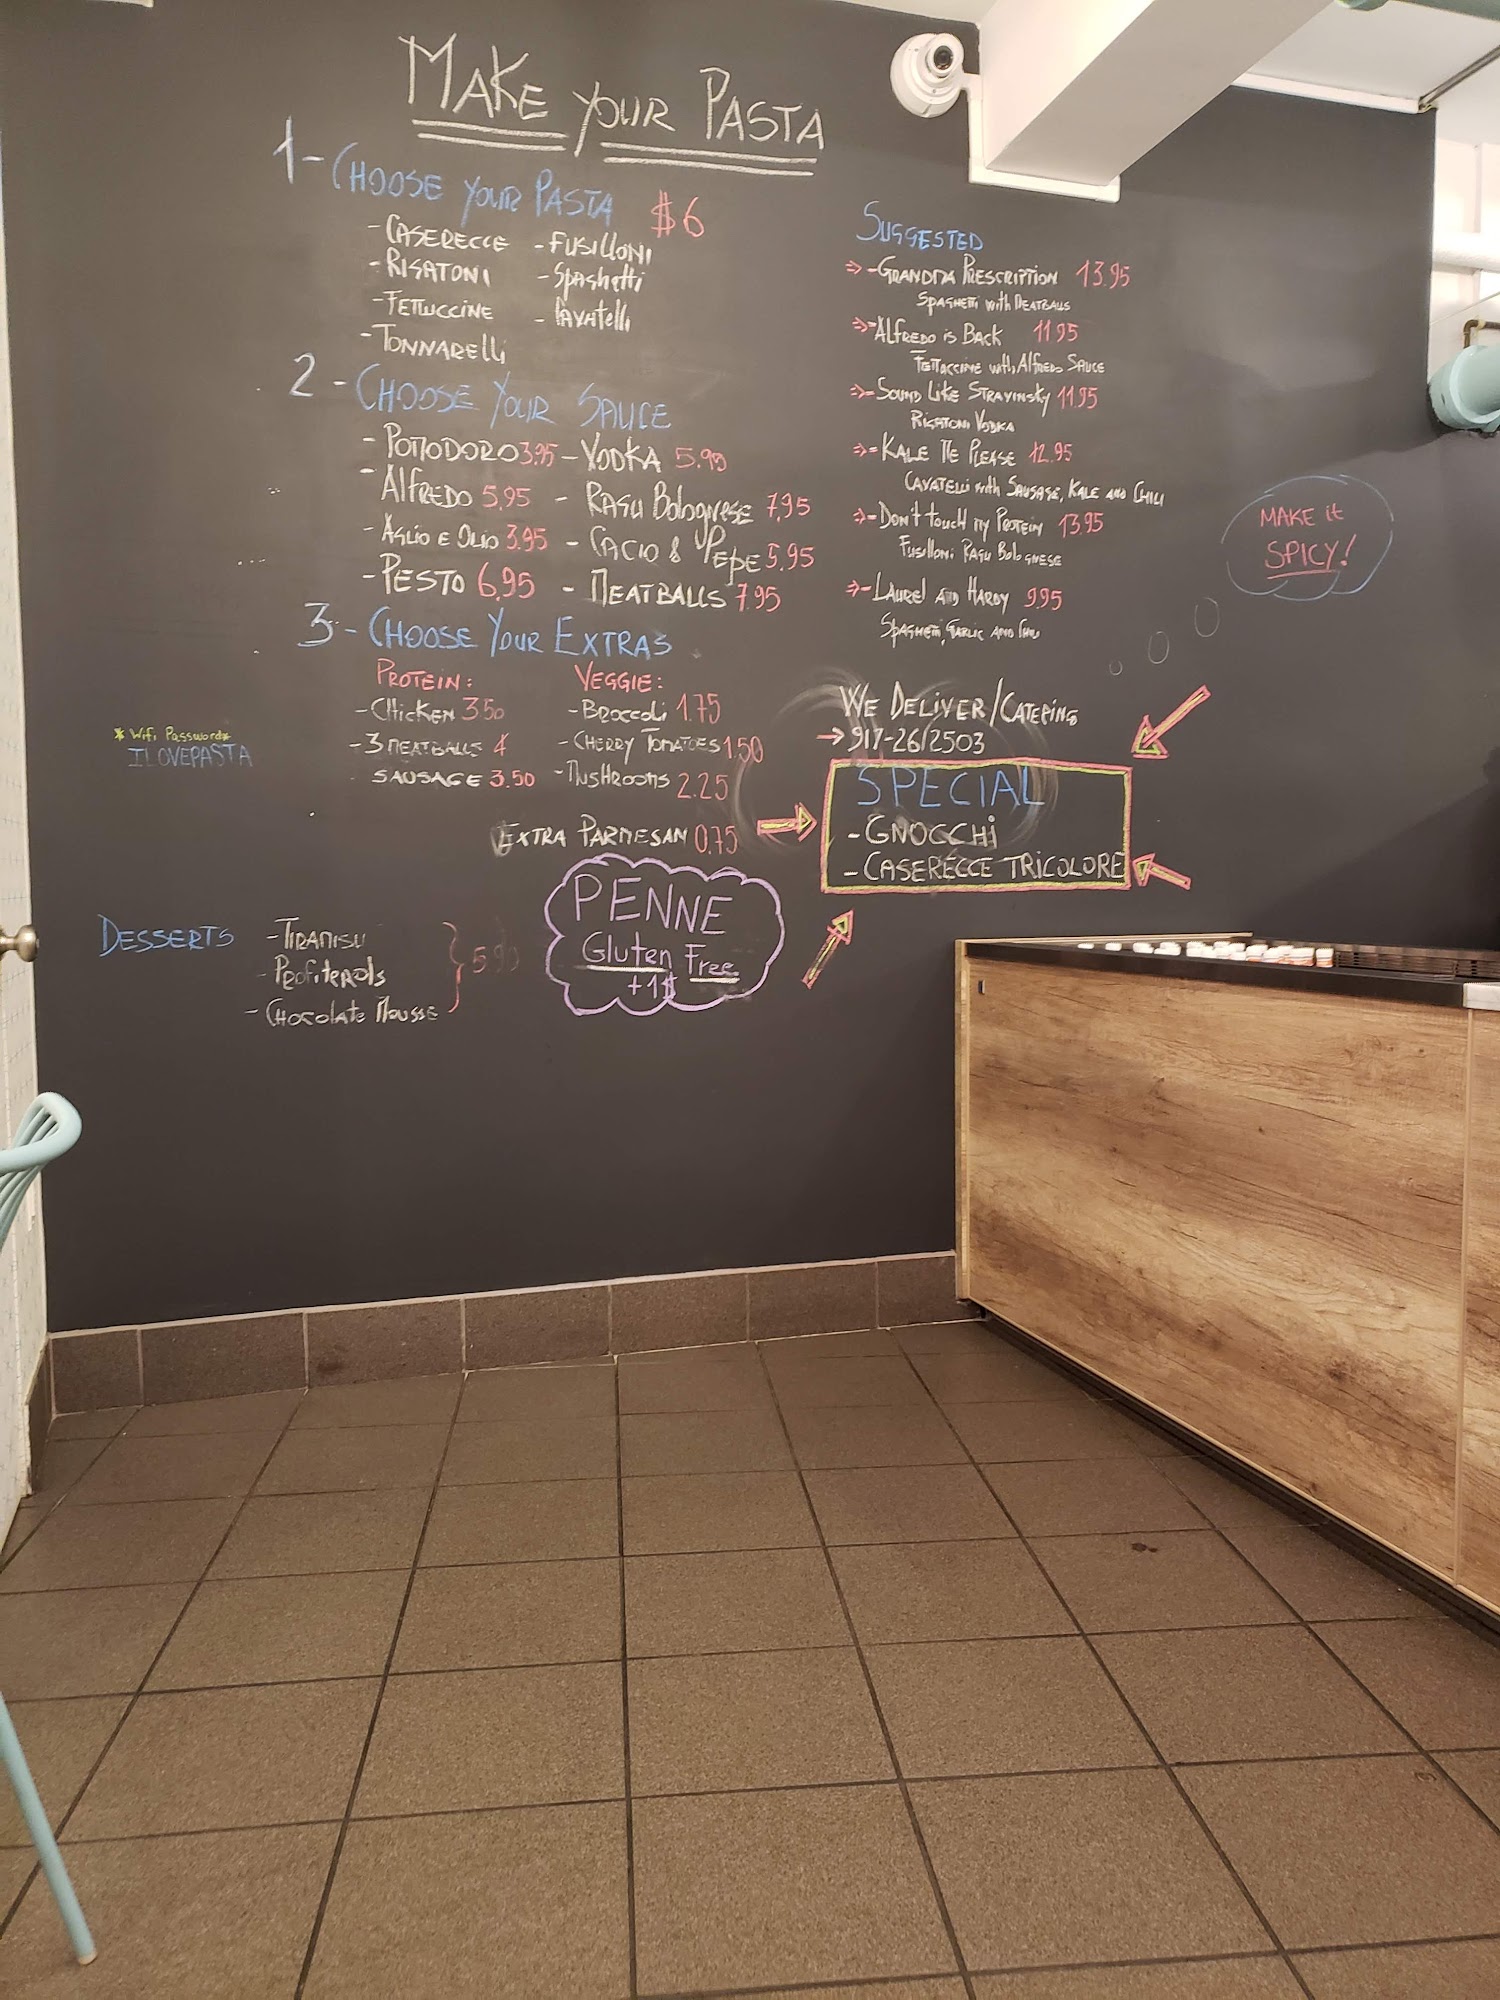 MAKE YOUR PASTA
1 - CHOOSE YOUR PASTA $6
- CASERECCE - FUSILLONI
- RIGATONI - SPAGHETTI
- FETTUCCINE - CAVATELLI
- TONNARELLI
2 - CHOOSE YOUR SAUCE
- POMODORO 3.95 - VODKA 5.95
- ALFREDO 5.95 - RAGU BOLOGNESE 7.95
- AGLIO E OLIO 3.95 - CACIO & PEPE 5.95
- PESTO 6.95 - MEATBALLS 7.95
3 - CHOOSE YOUR EXTRAS
PROTEIN: VEGGIE:
- CHICKEN 3.50 - BROCCOLI 1.75
- 3 MEATBALLS 4 - CHERRY TOMATOES 1.50
SAUSAGE 3.50 - MUSHROOMS 2.25
EXTRA PARMESAN 0.75
* Wifi Password *
ILOVEPASTA
PENNE
Gluten Free
+1$
DESSERTS - TIRAMISU
- PROFITEROLS
- CHOCOLATE MOUSSE
SUGGESTED
- GRANDMA PRESCRIPTION 13.95
SPAGHETTI WITH MEATBALLS
ALFREDO IS BACK 11.95
FETTUCCINE WITH ALFREDO SAUCE
SOUND LIKE STRAVINSKY 11.95
RIGATONI VODKA
KALE ME PLEASE 12.95
CAVATELLI WITH SAUSAGE, KALE AND CHILI
DON'T TOUCH MY PROTEIN 13.95
FUSILLONI RAGU BOLOGNESE
LAUREL AND HARDY 9.95
SPAGHETTI, GARLIC AND CHILI
MAKE IT
SPICY!
WE DELIVER/CATERING
→ 917-26/2503
SPECIAL
- GNOCCHI
- CASERECCE TRICOLORE